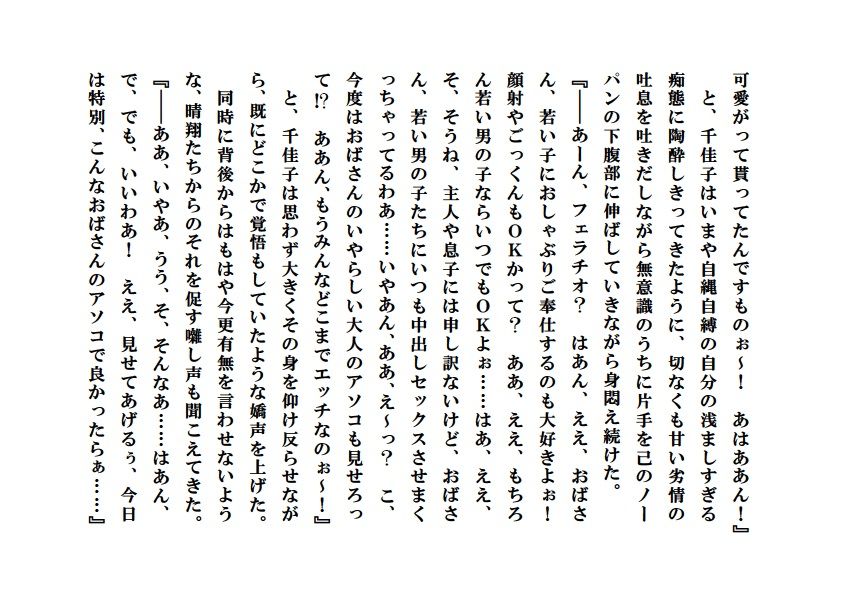 可愛がって貰ってたんですものぉ～！　あはああん！』
　と、千佳子はいまや自縄自縛の自分の浅ましすぎる
痴態に陶酔しきってきたように、切なくも甘い劣情の
吐息を吐きだしながら無意識のうちに片手を己のノー
パンの下腹部に伸ばしていきながら身悶え続けた。
『――あーん、フェラチオ？　はあん、ええ、おばさ
ん、若い子におしゃぶりご奉仕するのも大好きよぉ！
顔射やごっくんもＯＫかって？　ああ、ええ、もちろ
ん若い男の子ならいつでもＯＫよぉ……はあ、ええ、
そ、そうね、主人や息子には申し訳ないけど、おばさ
ん、若い男の子たちにいつも中出しセックスさせまく
っちゃってるわあ……いやあん、ああ、え～っ？　こ、
今度はおばさんのいやらしい大人のアソコも見せろっ
て⁉　ああん、もうみんなどこまでエッチなのぉ～！』
　と、千佳子は思わず大きくその身を仰け反らせなが
ら、既にどこかで覚悟もしていたような嬌声を上げた。
　同時に背後からはもはや今更有無を言わせないよう
な、晴翔たちからのそれを促す囃し声も聞こえてきた。
『――ああ、いやあ、うう、そ、そんなあ……はあん、
で、でも、いいわあ！　ええ、見せてあげるぅ、今日
は特別、こんなおばさんのアソコで良かったらぁ……』